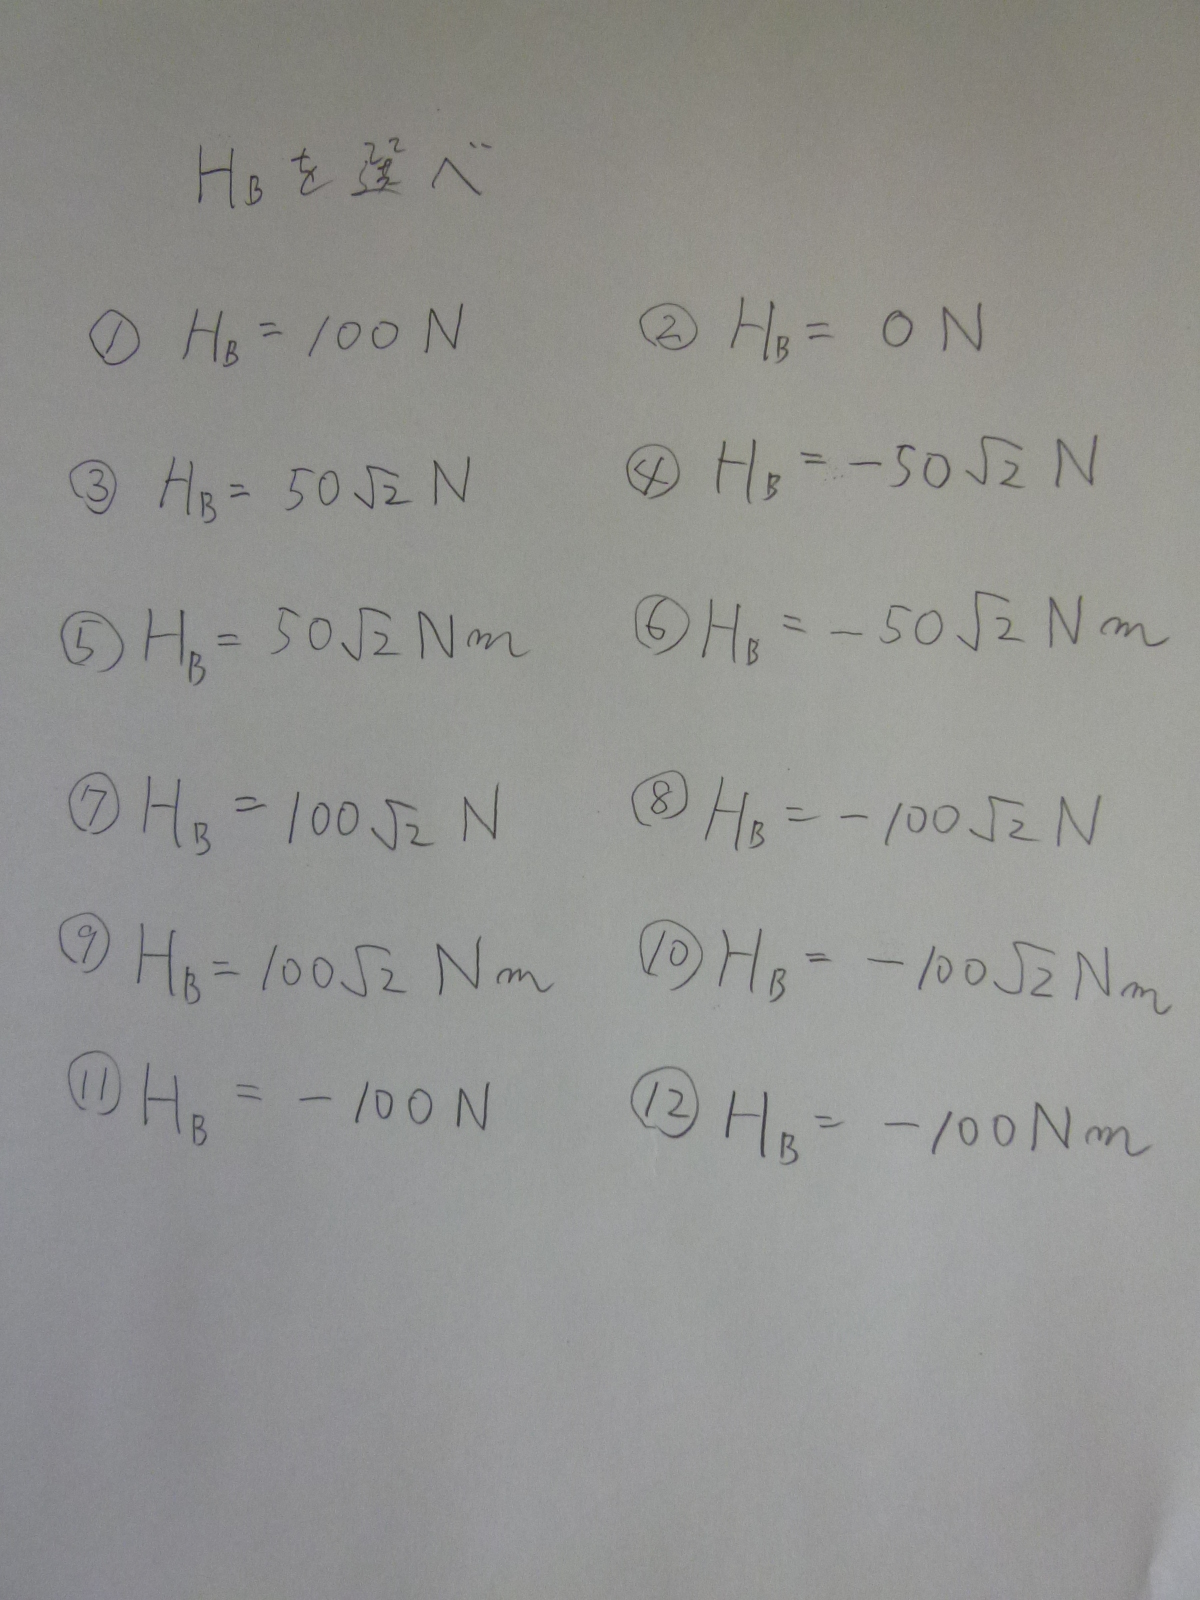 HBを選べ
① HB = 100 N ② HB = 0 N
③ HB = 50√2 N ④ HB = -50√2 N
⑤ HB = 50√2 Nm ⑥ HB = -50√2 Nm
⑦ HB = 100√2 N ⑧ HB = -100√2 N
⑨ HB = 100√2 Nm ⑩ HB = -100√2 Nm
⑪ HB = -100 N ⑫ HB = -100 Nm